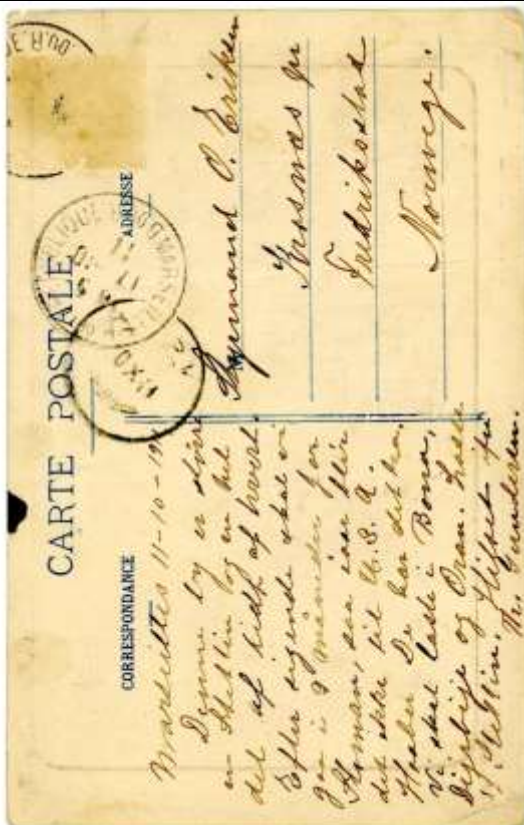 CARTE POSTALE
CORRESPONDANCE
ADRESSE
Marseilles 11-10-19
Denne by er større
en Stettin og en hel
del af hidh af hvert.
Efter sigende skal vi
gaa i 9 maaneder for
Roman, saa iaar blir
det ikke til U.S.A.
Haaber De har det bra.
Vi skal laste i Bona,
og Oran. Losse
i Stettin. Hilset fra
Gundersen.
O. Eriksen
Krosnæs pr
Fredriksstad
Norwege.